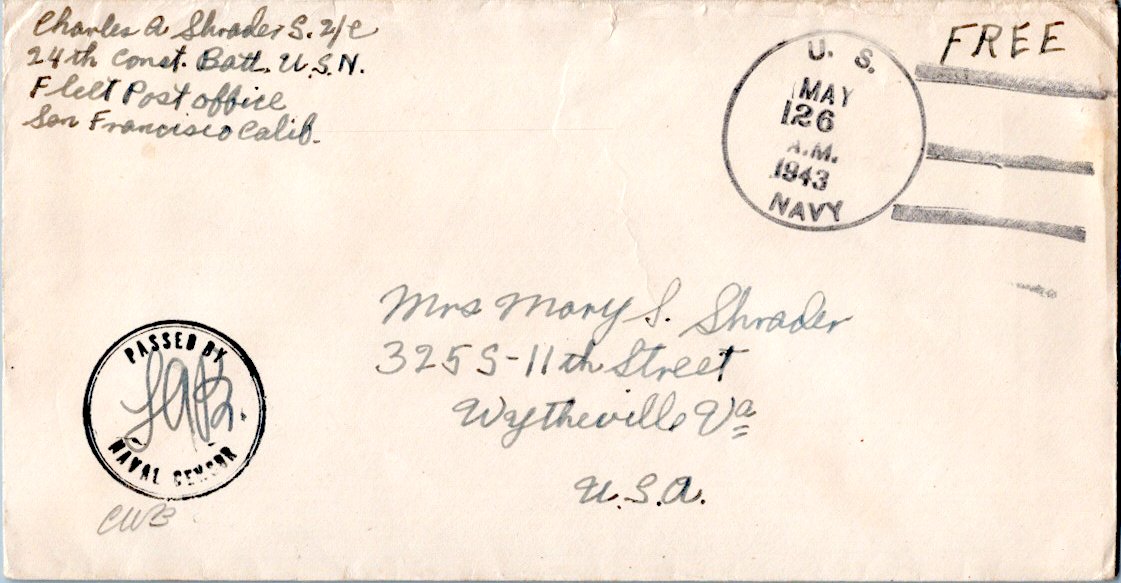 Charles A Shrader S. 2/C
24th Const. Batt. U.S.N.
Fleet Post office
San Francisco Calif.
FREE
U. S.
MAY
26
A.M.
1943
NAVY
Mrs Mary S. Shrader
325 S-11th Street
Wytheville Va
U.S.A.
PASSED BY
NAVAL CENSOR